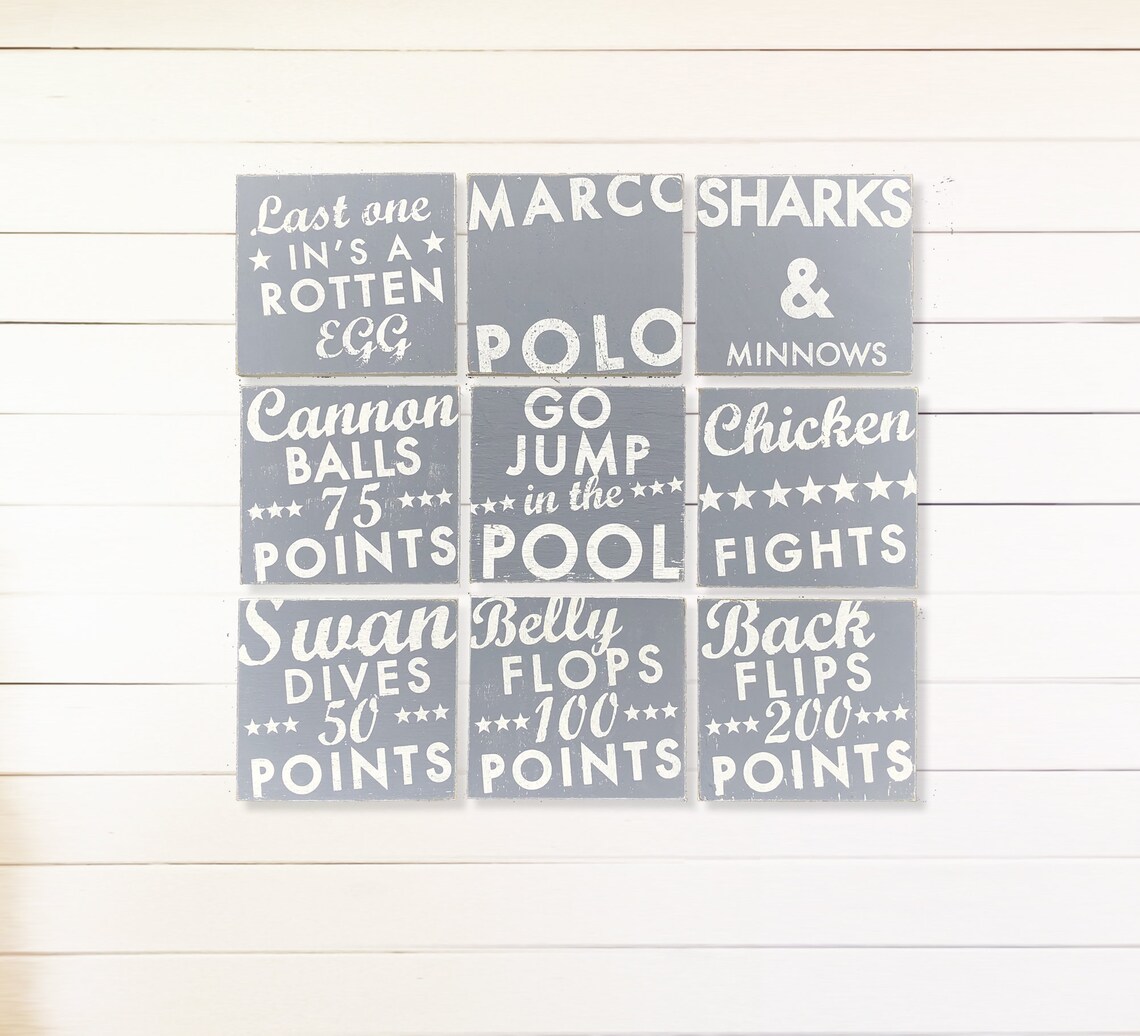 Last one
IN'S A
ROTTEN
EGG
MARCO
POLO
SHARKS
&
MINNOWS
Cannon
BALLS
75
POINTS
GO
JUMP
in the
POOL
Chicken
FIGHTS
Swan
DIVES
50
POINTS
Belly
FLOPS
100
POINTS
Back
FLIPS
200
POINTS